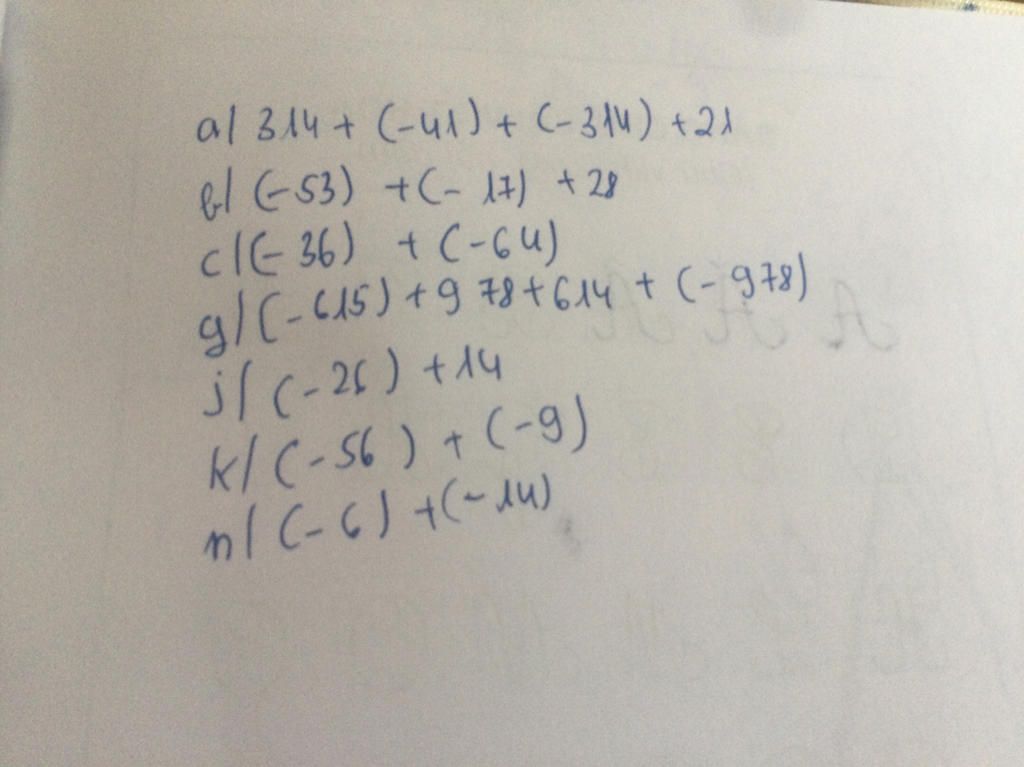 a/ 314 + (-41) + (-314) + 21
b/ (-53) + (- 17) + 28
c/ (- 36) + (-64)
g/ (-615) + 978 + 614 + (- 978)
j/ (-26) + 14
k/ (-56) + (-9)
n/ (- 6) + (- 14)